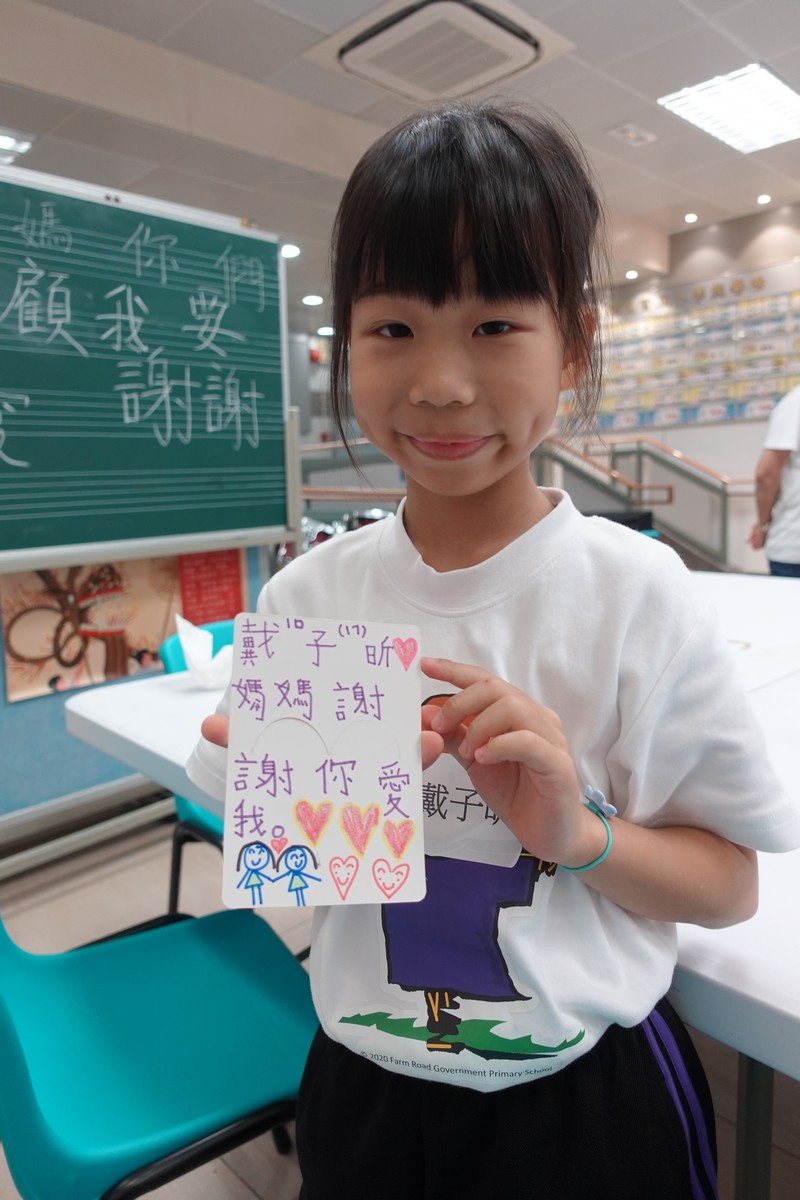 媽 你們
顧我要
謝謝
愛
戴10子(17)昕
媽媽謝
謝你愛
我。
戴子昕
© 2020 Farm Road Government Primary School